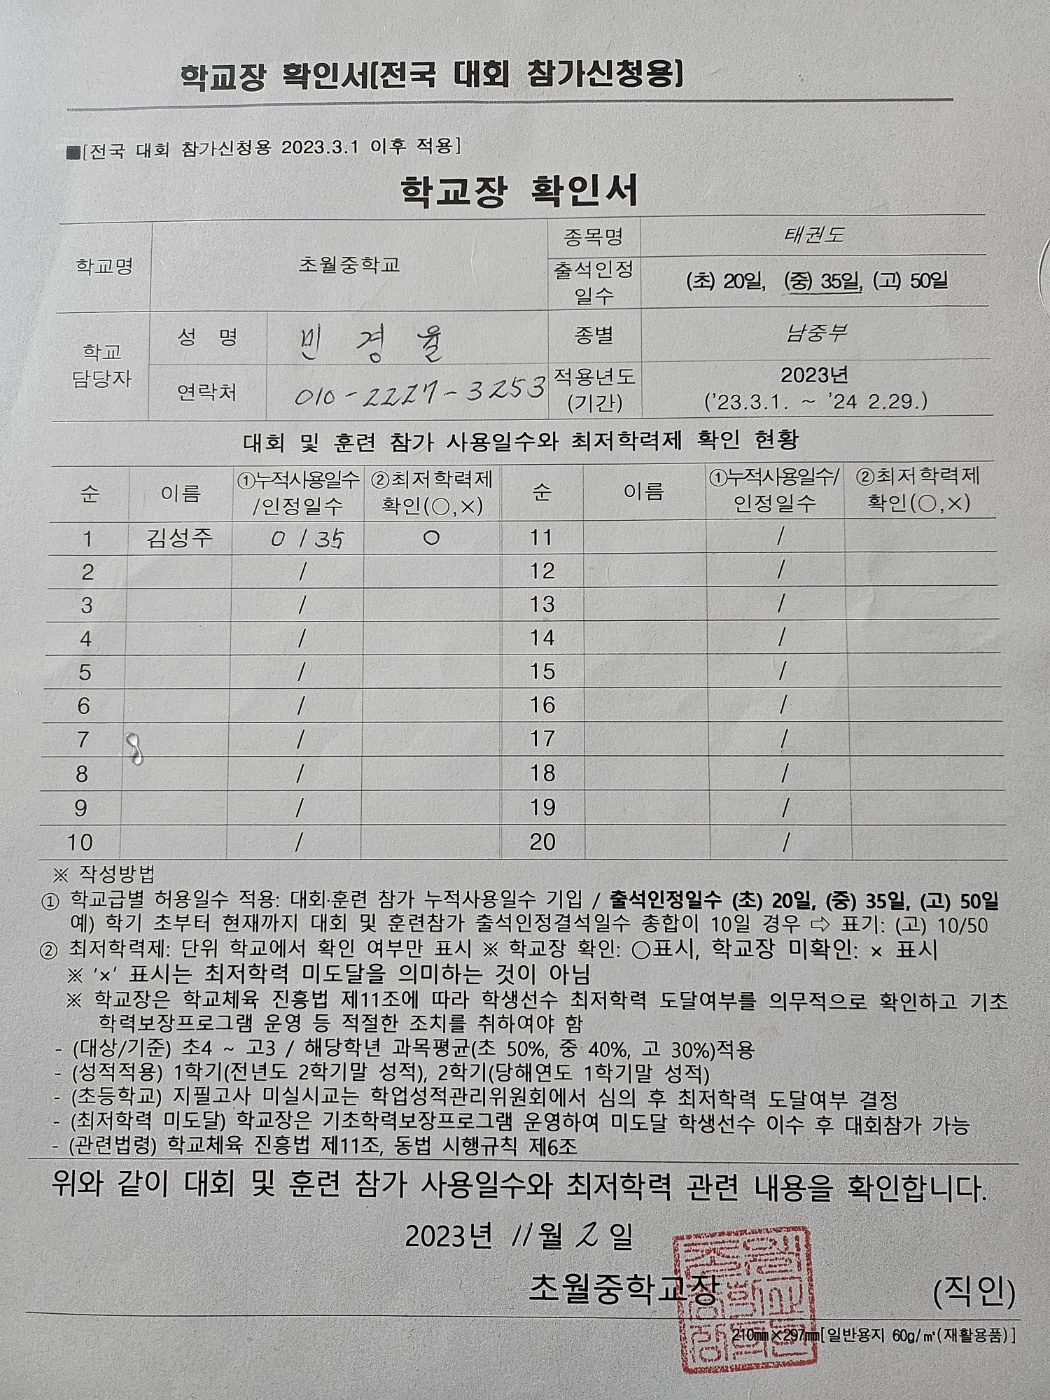 학교장 확인서(전국 대회 참가신청용)
■[전국 대회 참가신청용 2023.3.1 이후 적용]
학교장 확인서
학교명 초월중학교 종목명 태권도
출석인정 일수 (초) 20일, (중) 35일, (고) 50일
학교 담당자 성 명 민 경 율 종별 남중부
연락처 010-2227-3253 적용년도 (기간) 2023년 ('23.3.1. ~ '24 2.29.)
대회 및 훈련 참가 사용일수와 최저학력제 확인 현황
순 이름 ①누적사용일수 /인정일수 ②최저학력제 확인(○,×) 순 이름 ①누적사용일수/ 인정일수 ②최저학력제 확인(○,×)
1 김성주 0 / 35 ○ 11 /
2 / 12 /
3 / 13 /
4 / 14 /
5 / 15 /
6 / 16 /
7 / 17 /
8 / 18 /
9 / 19 /
10 / 20 /
※ 작성방법
① 학교급별 허용일수 적용: 대회·훈련 참가 누적사용일수 기입 / 출석인정일수 (초) 20일, (중) 35일, (고) 50일
예) 학기 초부터 현재까지 대회 및 훈련참가 출석인정결석일수 총합이 10일 경우 ⇨ 표기: (고) 10/50
② 최저학력제: 단위 학교에서 확인 여부만 표시 ※ 학교장 확인: ○표시, 학교장 미확인: × 표시
※ '×' 표시는 최저학력 미도달을 의미하는 것이 아님
※ 학교장은 학교체육 진흥법 제11조에 따라 학생선수 최저학력 도달여부를 의무적으로 확인하고 기초
학력보장프로그램 운영 등 적절한 조치를 취하여야 함
- (대상/기준) 초4 ~ 고3 / 해당학년 과목평균(초 50%, 중 40%, 고 30%)적용
- (성적적용) 1학기(전년도 2학기말 성적), 2학기(당해연도 1학기말 성적)
- (초등학교) 지필고사 미실시교는 학업성적관리위원회에서 심의 후 최저학력 도달여부 결정
- (최저학력 미도달) 학교장은 기초학력보장프로그램 운영하여 미도달 학생선수 이수 후 대회참가 가능
- (관련법령) 학교체육 진흥법 제11조, 동법 시행규칙 제6조
위와 같이 대회 및 훈련 참가 사용일수와 최저학력 관련 내용을 확인합니다.
2023년 11월 2 일
초월중학교장 (직인)
210㎜×297㎜[일반용지 60g/㎡(재활용품)]